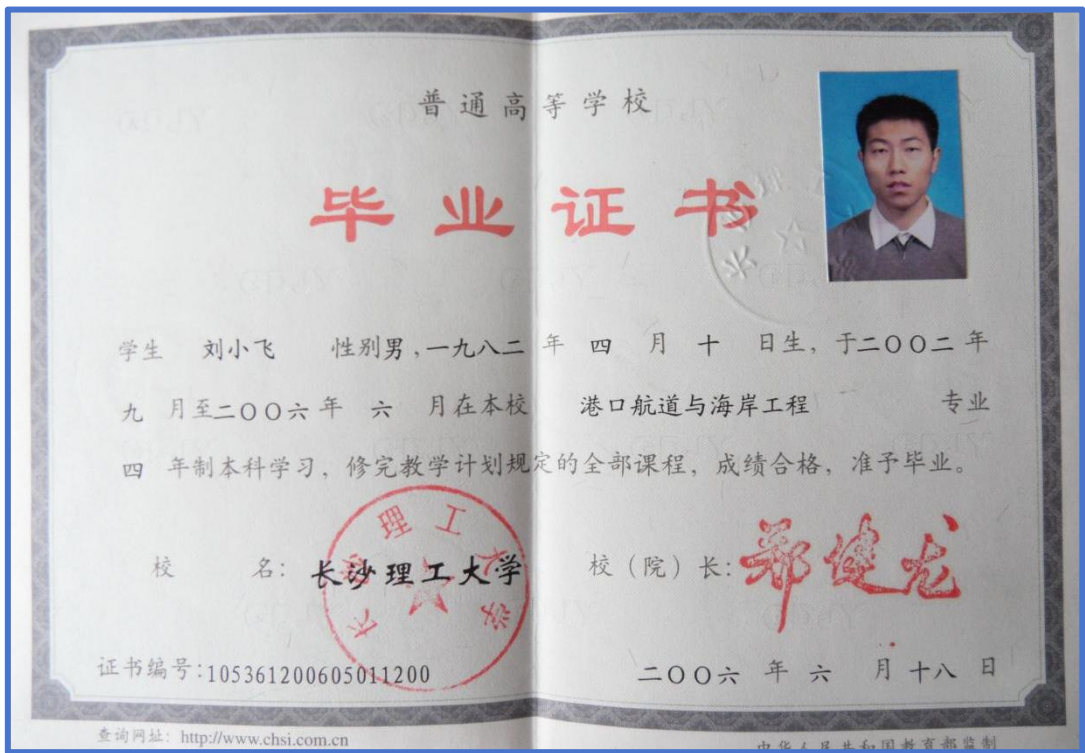 普通高等学校
毕业证书
学生 刘小飞 性别男,一九八二 年 四 月 十 日生，于二〇〇二年
九 月至二〇〇六年 六 月在本校 港口航道与海岸工程 专业
四 年制本科学习，修完教学计划规定的全部课程，成绩合格，准予毕业。
校 名：长沙理工大学 校（院）长：郑健龙
长沙理工大学
证书编号:105361200605011200 二〇〇六 年 六 月 十八 日
查询网址：http://www.chsi.com.cn 中华人民共和国教育部监制